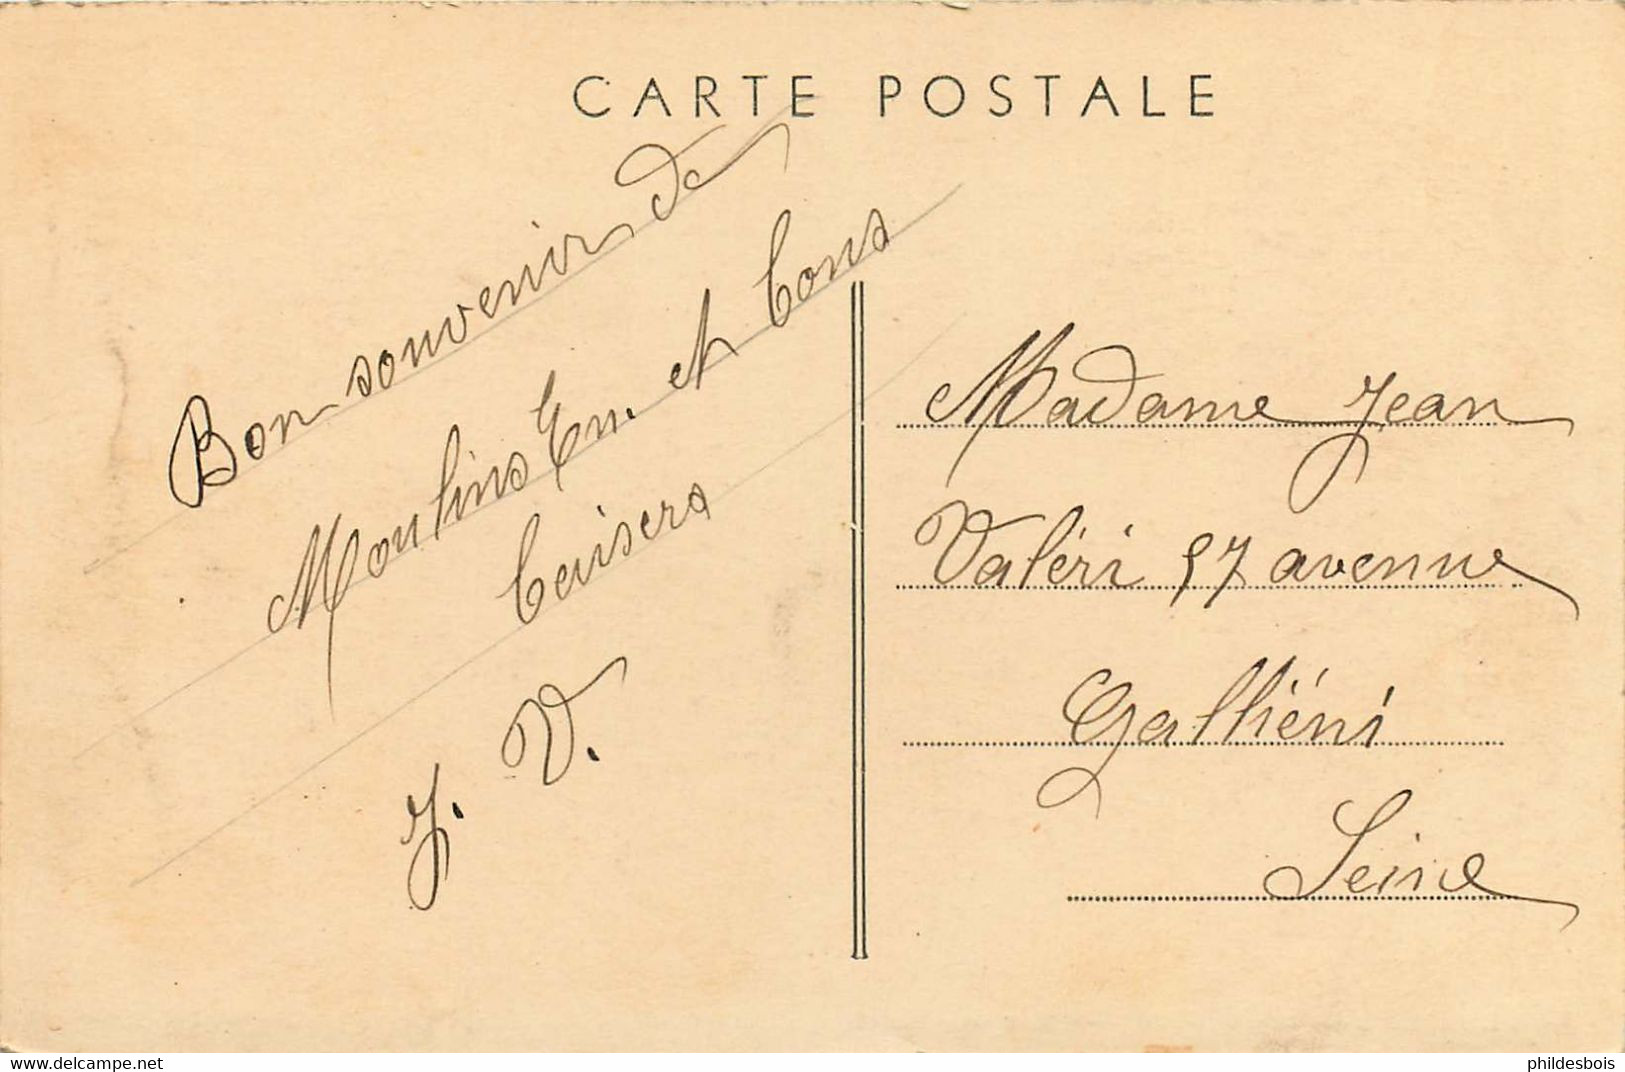 CARTE POSTALE
Bon souvenir de
Moulins En. et tous
baisers
J. V.
Madame Jean
Valéri 57 avenue
Galliéni
Seine
delcampe.net
phildesbois